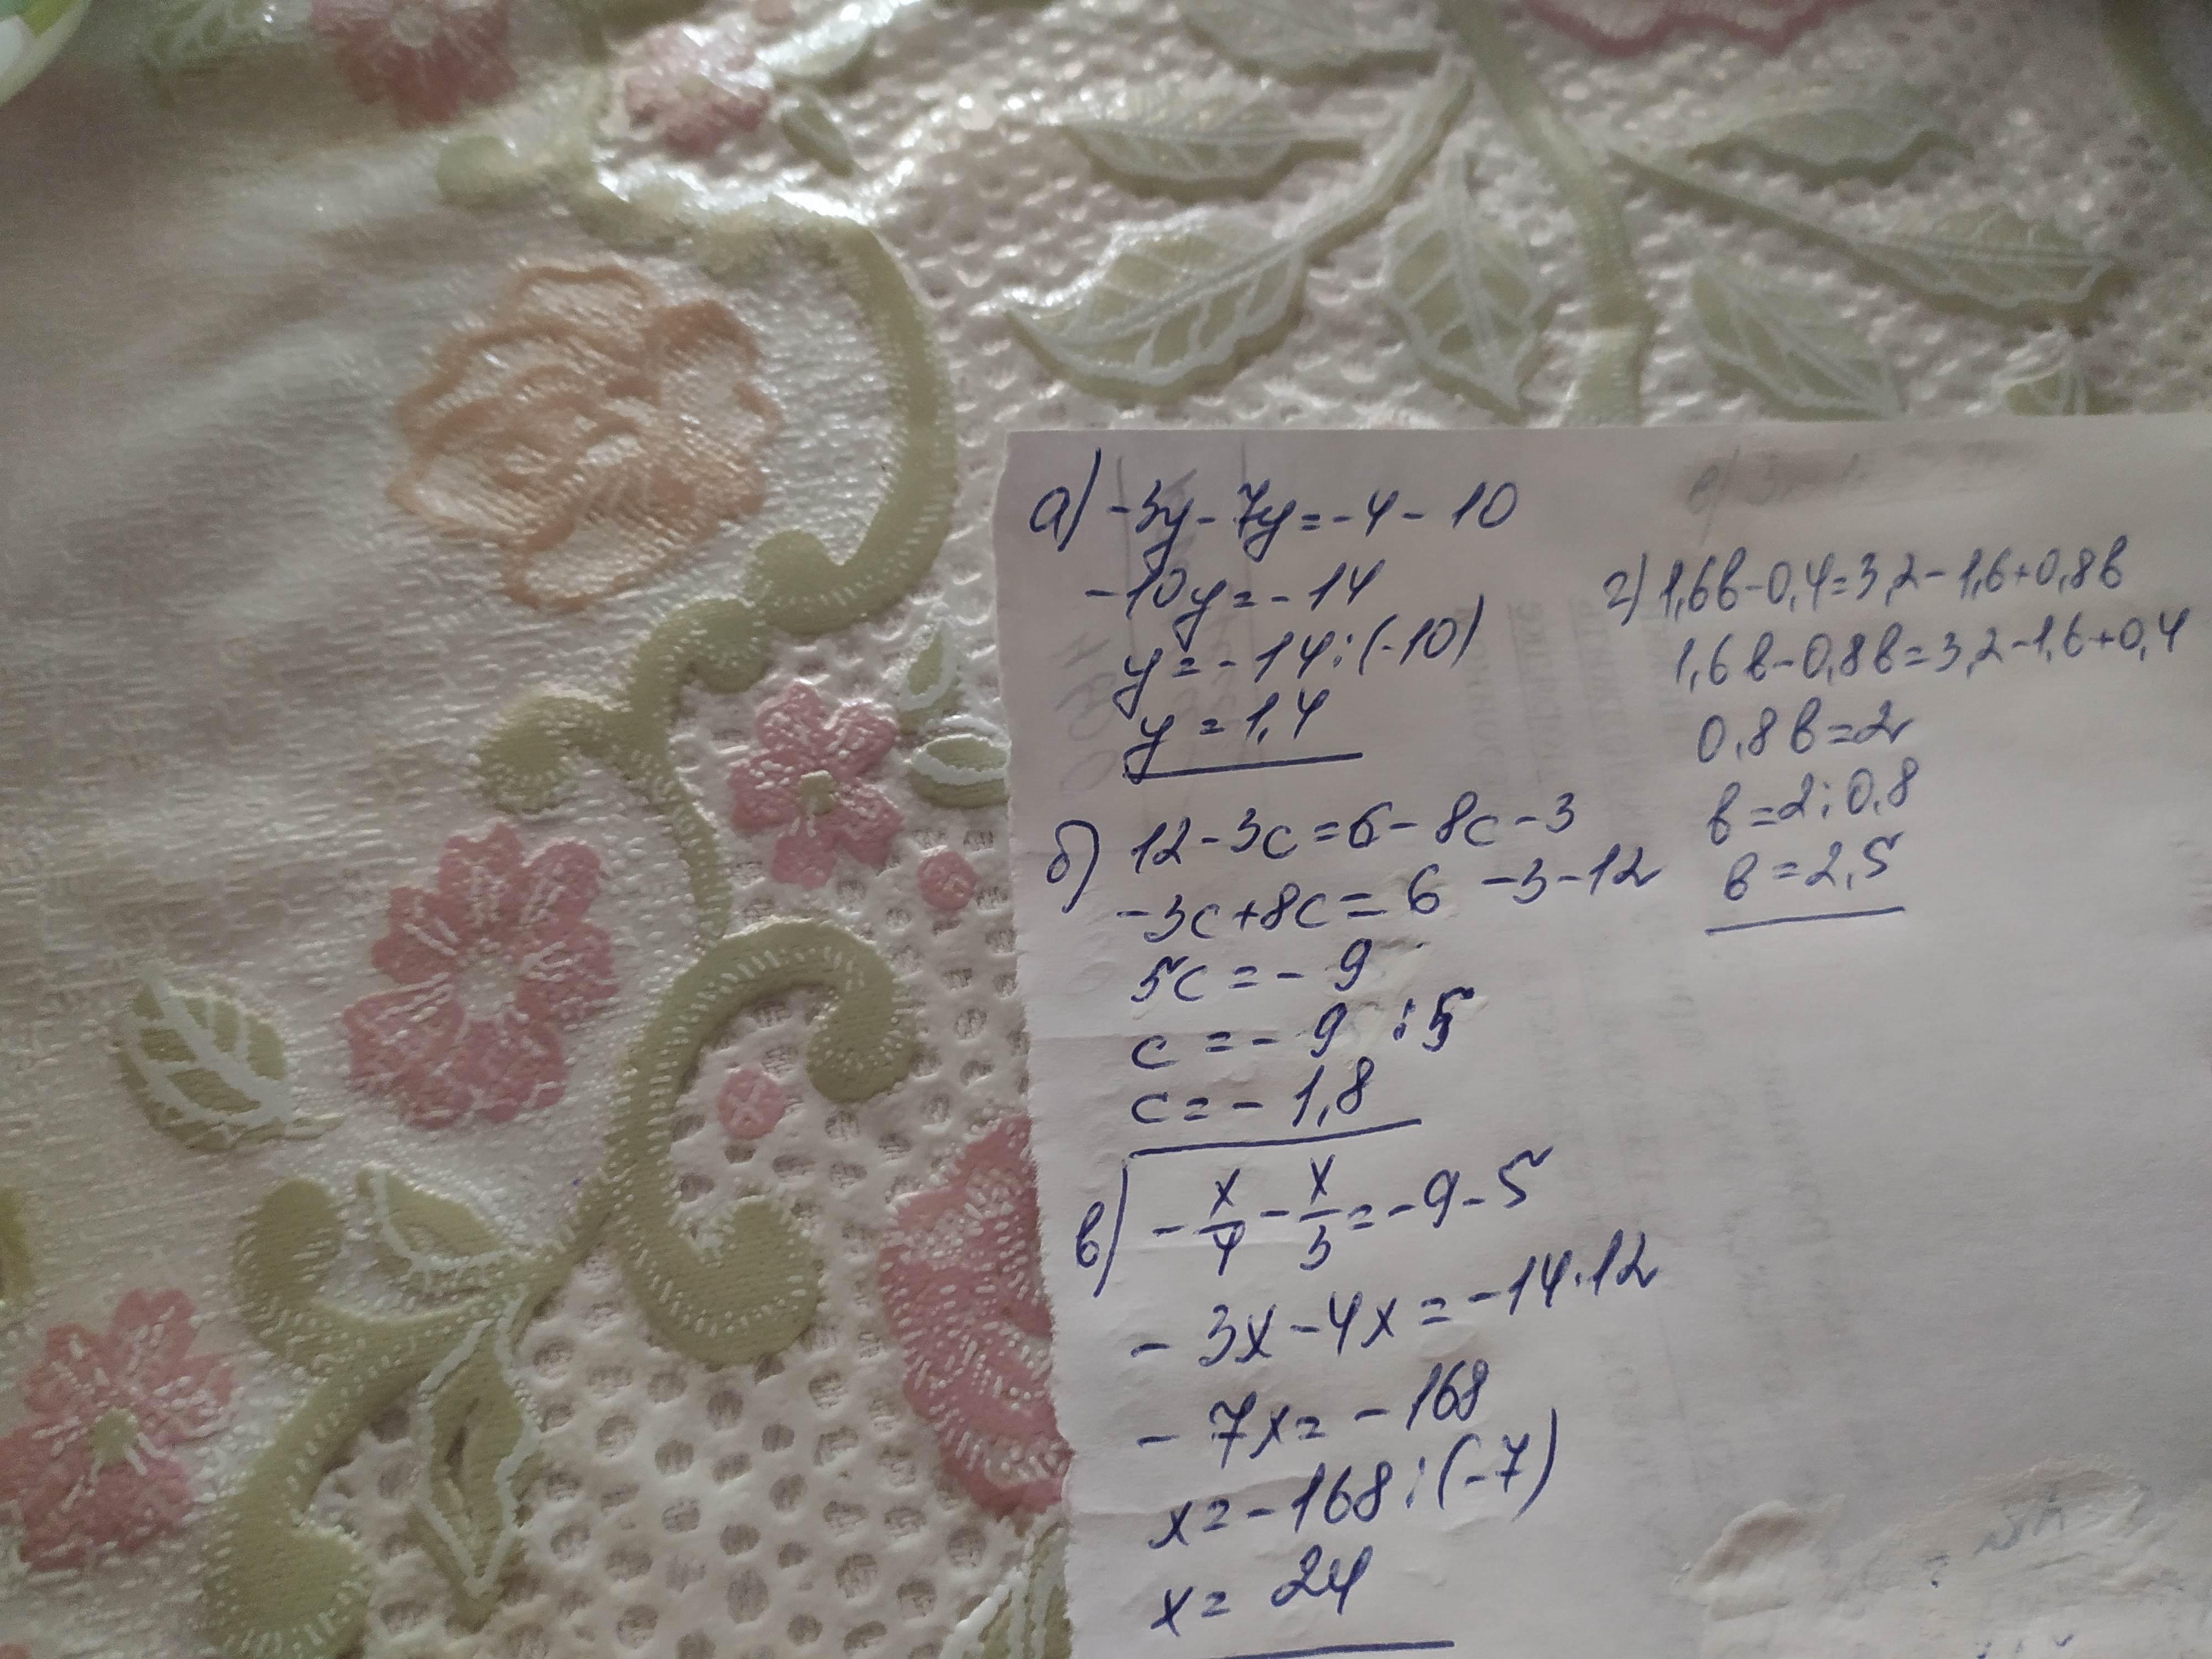 а) -3y - 7y = -4 - 10
-10y = -14
y = -14 : (-10)
y = 1,4
б) 12 - 3c = 6 - 8c - 3
-3c + 8c = 6 - 3 - 12
5c = - 9
c = - 9 : 5
c = - 1,8
в) - x/4 - x/3 = -9 - 5
- 3x - 4x = -14 · 12
- 7x = - 168
x = -168 : (-7)
x = 24
г) 1,6в - 0,4 = 3,2 - 1,6 + 0,8в
1,6в - 0,8в = 3,2 - 1,6 + 0,4
0,8в = 2
в = 2 : 0,8
в = 2,5